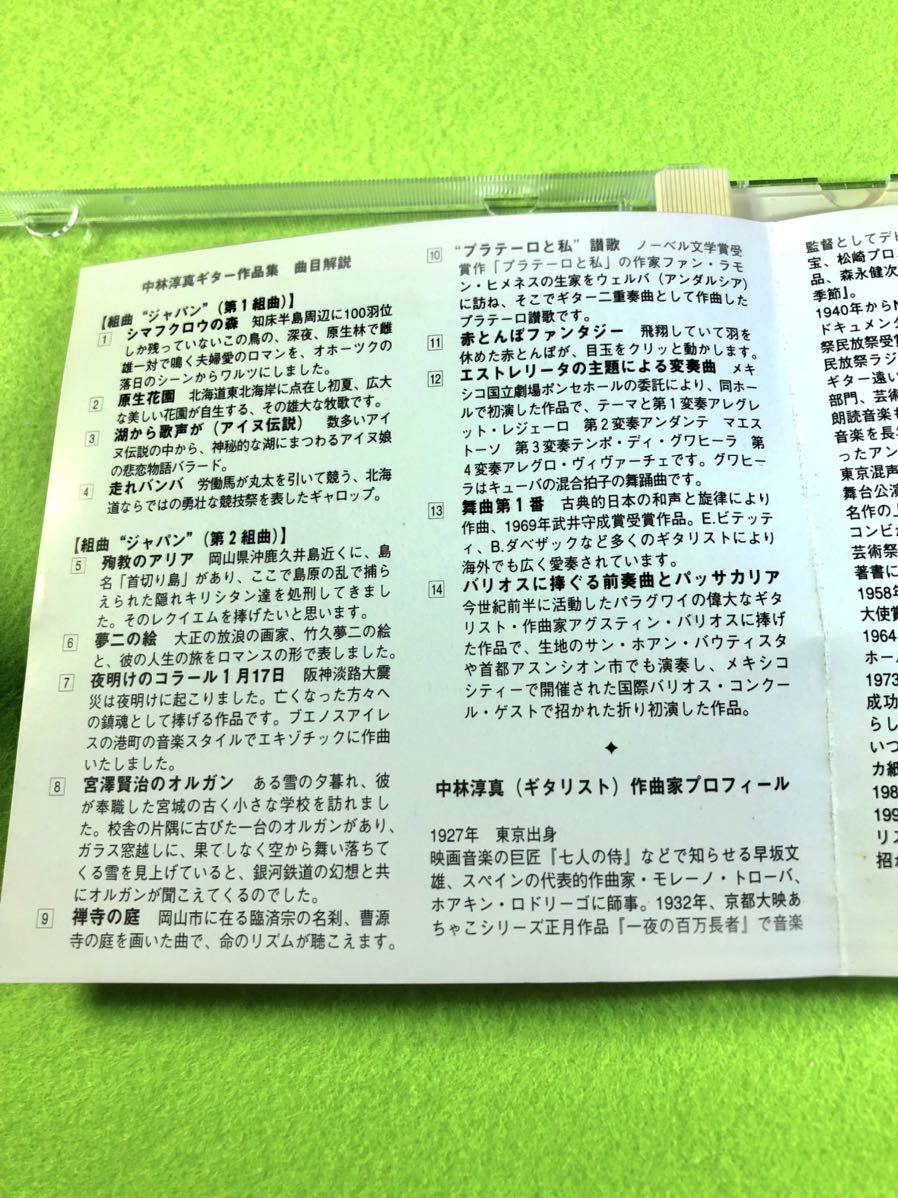 中林淳真ギター作品集　曲目解説
【組曲 “ジャパン”（第1組曲）】
1 シマフクロウの森　知床半島周辺に100羽位
しか残っていないこの鳥の、深夜、原生林で雌
雄一対で鳴く夫婦愛のロマンを、オホーツクの
落日のシーンからワルツにしました。
2 原生花園　北海道東北海岸に点在し初夏、広大
な美しい花園が自生する、その雄大な牧歌です。
3 湖から歌声が（アイヌ伝説）　数多いアイ
ヌ伝説の中から、神秘的な湖にまつわるアイヌ娘
の悲恋物語バラード。
4 走れバンバ　労働馬が丸太を引いて競う、北海
道ならではの勇壮な競技祭を表したギャロップ。
【組曲 “ジャパン”（第2組曲）】
5 殉教のアリア　岡山県沖鹿久井島近くに、島
名「首切り島」があり、ここで島原の乱で捕ら
えられた隠れキリシタン達を処刑してきまし
た。そのレクイエムを捧げたいと思います。
6 夢二の絵　大正の放浪の画家、竹久夢二の絵
と、彼の人生の旅をロマンスの形で表しました。
7 夜明けのコラール1月17日　阪神淡路大震
災は夜明けに起こりました。亡くなった方々へ
の鎮魂として捧げる作品です。ブエノスアイレ
スの港町の音楽スタイルでエキゾチックに作曲
いたしました。
8 宮澤賢治のオルガン　ある雪の夕暮れ、彼
が奉職した宮城の古く小さな学校を訪れまし
た。校舎の片隅に古びた一台のオルガンがあり、
ガラス窓越しに、果てしなく空から舞い落ちて
くる雪を見上げていると、銀河鉄道の幻想と共
にオルガンが聞こえてくるのでした。
9 禅寺の庭　岡山市に在る臨済宗の名刹、曹源
寺の庭を画いた曲で、命のリズムが聴こえます。
10 “プラテーロと私” 讃歌　ノーベル文学賞受
賞作「プラテーロと私」の作家ファン・ラモ
ン・ヒメネスの生家をウェルバ（アンダルシア）
に訪ね、そこでギター二重奏曲として作曲した
プラテーロ讃歌です。
11 赤とんぼファンタジー　飛翔していて羽を
休めた赤とんぼが、目玉をクリッと動かします。
12 エストレリータの主題による変奏曲　メキ
シコ国立劇場ポンセホールの委託により、同ホー
ルで初演した作品で、テーマと第1変奏アレグレ
ット・レジェーロ　第2変奏アンダンテ　マエス
トーソ　第3変奏テンポ・ディ・グワヒーラ　第
4変奏アレグロ・ヴィヴァーチェです。グワヒー
ラはキューバの混合拍子の舞踊曲です。
13 舞曲第1番　古典的日本の和声と旋律により
作曲、1969年武井守成賞受賞作品。E.ビテッテ
ィ、B.ダベザックなど多くのギタリストにより
海外でも広く愛奏されています。
14 バリオスに捧ぐる前奏曲とパッサカリア
今世紀前半に活動したパラグワイの偉大なギタ
リスト・作曲家アグスティン・バリオスに捧げ
た作品で、生地のサン・ホアン・バウティスタ
や首都アスンシオン市でも演奏し、メキシコ
シティーで開催された国際バリオス・コンクー
ル・ゲストで招かれた折り初演した作品。
中林淳真（ギタリスト）作曲家プロフィール
1927年　東京出身
映画音楽の巨匠『七人の侍』などで知らせる早坂文
雄、スペインの代表的作曲家・モレーノ・トローバ、
ホアキン・ロドリーゴに師事。1932年、京都大映あ
ちゃこシリーズ正月作品『一夜の百万長者』で音楽
監督としてデビ
宝、松崎プロ、
品、森永健次
季節]。
1940年からN
ドキュメンタ
祭民放祭受賞
民放祭ラジ
ギター遠い
部門、芸術
朗読音楽も
音楽を長年
ったアン
東京混声
舞台公演
名作の
コンビか
芸術祭
著書に
1958年
大使賞
1964
ホーム
1973
成功
らし
いつ
カ紙
198
199
リス
招か